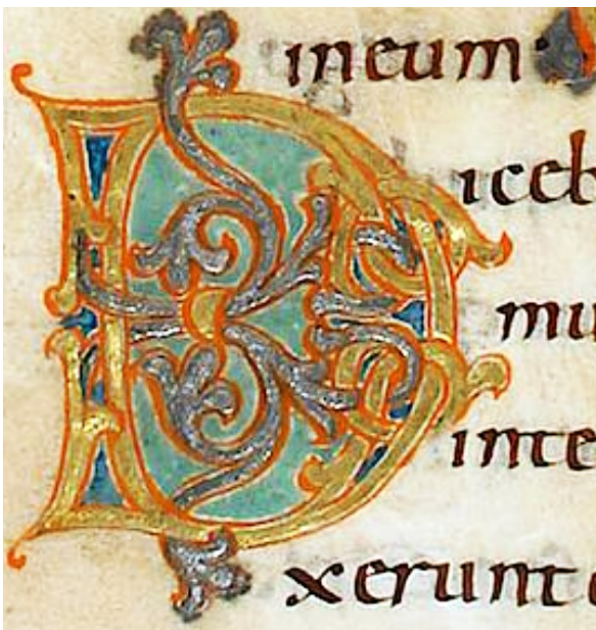 D
ineum·
iceb
mu
inte
xerunt